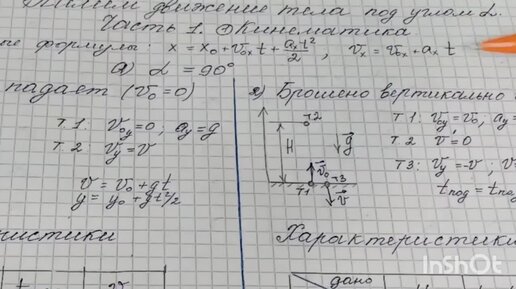 движение тела под углом α.
Часть 1. Кинематика
формулы: x = x₀ + v₀ₓt + aₓt²/2, vₓ = v₀ₓ + aₓt
а) α = 90°
падает (v₀ = 0)
т 1: v₀y = 0, ay = g
т 2: vy = v
v = v₀ + gt
y = y₀ + gt²/2
2) Брошено вертикально
т2
H
g⃗
v⃗₀
т1
т3
v⃗
т1: v₀y = v₀, ay =
т2 v = 0
т3: vy = -v,
tпод = tп
Характеристики
дано
InShOt